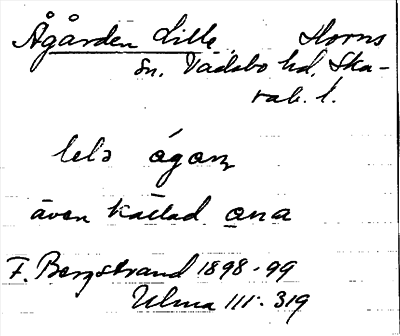 Ågården Lille, Horns
sn. Vadsbo hd, Ska-
rab. l.
lelə ógoɳ
även kallad ona
F. Bergstrand 1898-99
Ulma 111:319